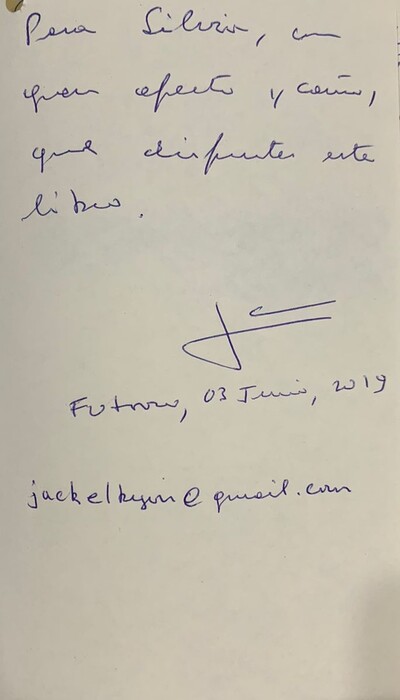 Para Silvia, con
gran afecto y cariño,
que disfrutes este
libro.
Futrono, 03 Junio, 2019
@gmail.com